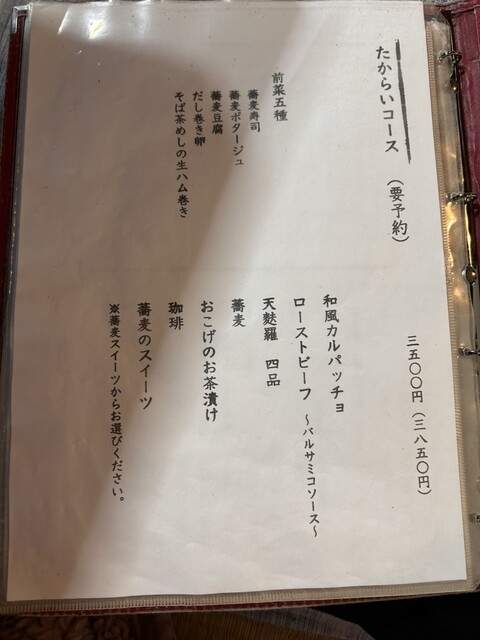 たからいコース （要予約）
三五〇〇円（三八五〇円）
前菜五種
蕎麦寿司
蕎麦ポタージュ
蕎麦豆腐
だし巻き卵
そば茶めしの生ハム巻き
和風カルパッチョ
ローストビーフ ～バルサミコソース～
天麩羅 四品
蕎麦
おこげのお茶漬け
珈琲
蕎麦のスイーツ
※蕎麦スイーツからお選びください。